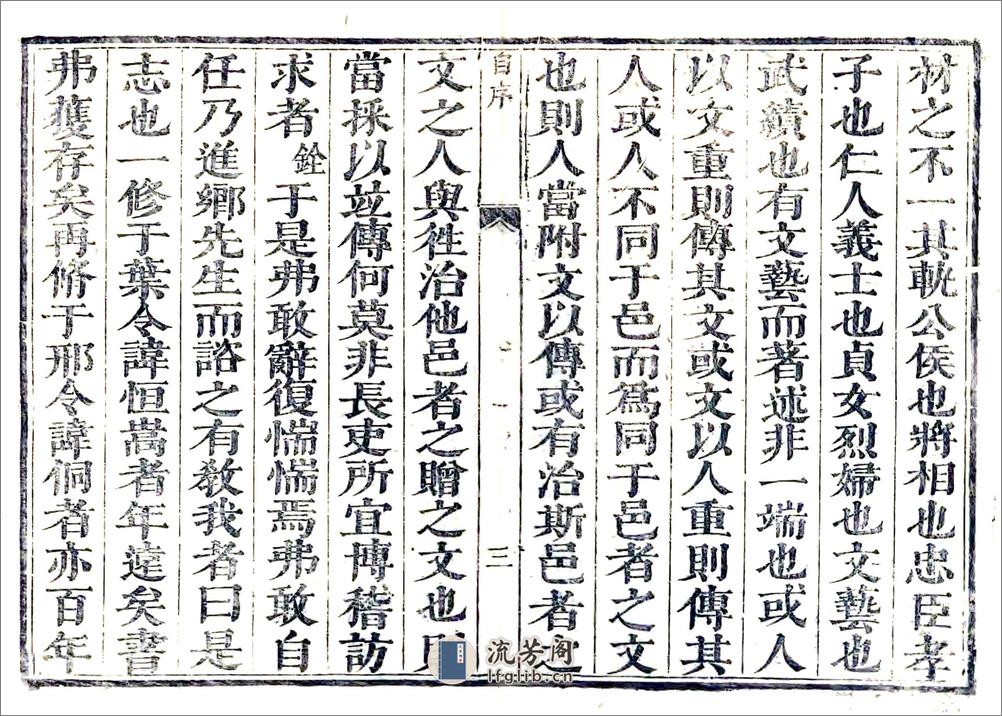 材之不一其軏公侯也將相也忠臣孝
子也仁人義士也貞女烈婦也文藝也
武績也有文藝而著述非一端也或人
以文重則傳其文或文以人重則傳其
人或人不同于邑而爲同于邑者之文
也則人當附文以傳或有治斯邑者之
自序
三
文之人與徃治他邑者之贈之文也則
當採以竝傳何莫非長吏所宜博稽訪
求者銓于是弗敢辭復惴惴焉弗敢自
任乃進鄉先生而諮之有教我者曰是
志也一修于葉令諱恒嵩者年遠矣書
弗獲存矣再脩于邢令諱侗者亦百年
流芳阁
lfglib.cn